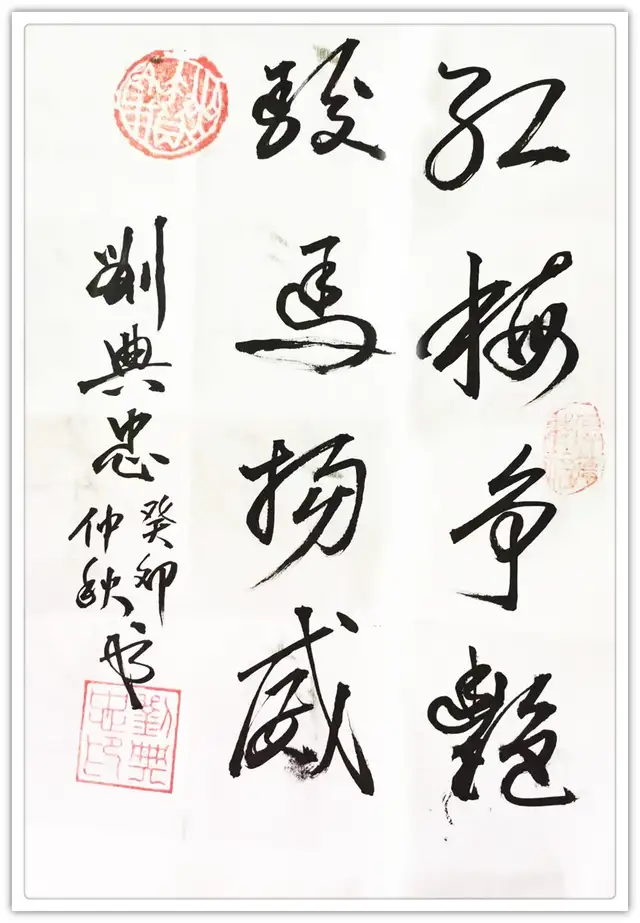 红梅争艳
骏马扬威
刘典忠
癸卯
仲秋书
劉典
忠印